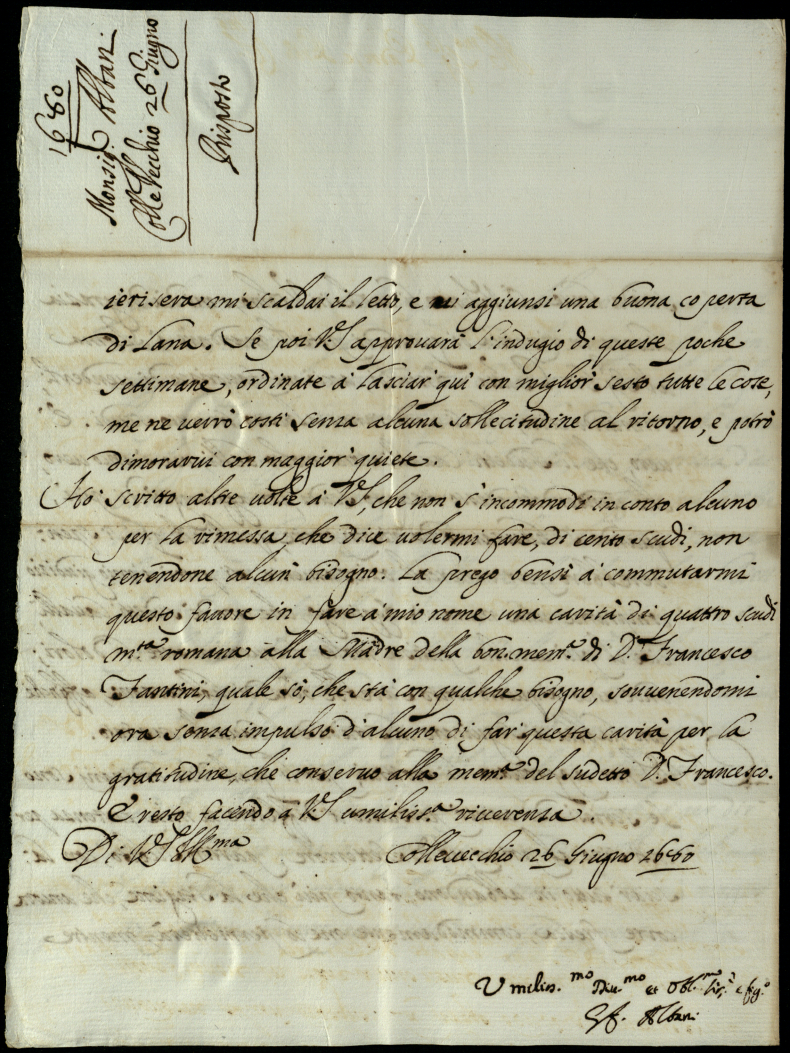 1680
Monsig.r Albani
Collevecchio 26 Giugno
Risposto
ieri sera mi scaldai il letto, e vi aggiunsi una buona coperta
di lana. Se poi V.S. approuarà l'indugio di queste poche
settimane, ordinate à lasciar' qui con miglior' sesto tutte le cose,
me ne verrò costì senza alcuna sollecitudine al ritorno, e potrò
dimorarui con maggior' quiete.
Hò scritto altre uolte à V.S., che non s'incommodi in conto alcuno
per la rimessa, che dice uolermi fare, di cento scudi, non
tenendone alcun' bisogno. La prego bensì à commutarmi
questo fauore in fare à mio nome una carità di quattro scudi
m.ta romana alla Madre della bon. mem.a di D. Francesco
Fantini, quale sò, che stà con qualche bisogno, souuenendomi
ora senza impulso d'alcuno di far' questa carità per la
gratitudine, che conseruo alla mem.a del sudetto D. Francesco.
E resto facendo à V.S. umiliss.a riuerenza.
Di V.S. Ill.ma Colleuecchio 26 Giugno 1680
Umiliss.mo Deu.mo et Obl.mo
Gf. Albani